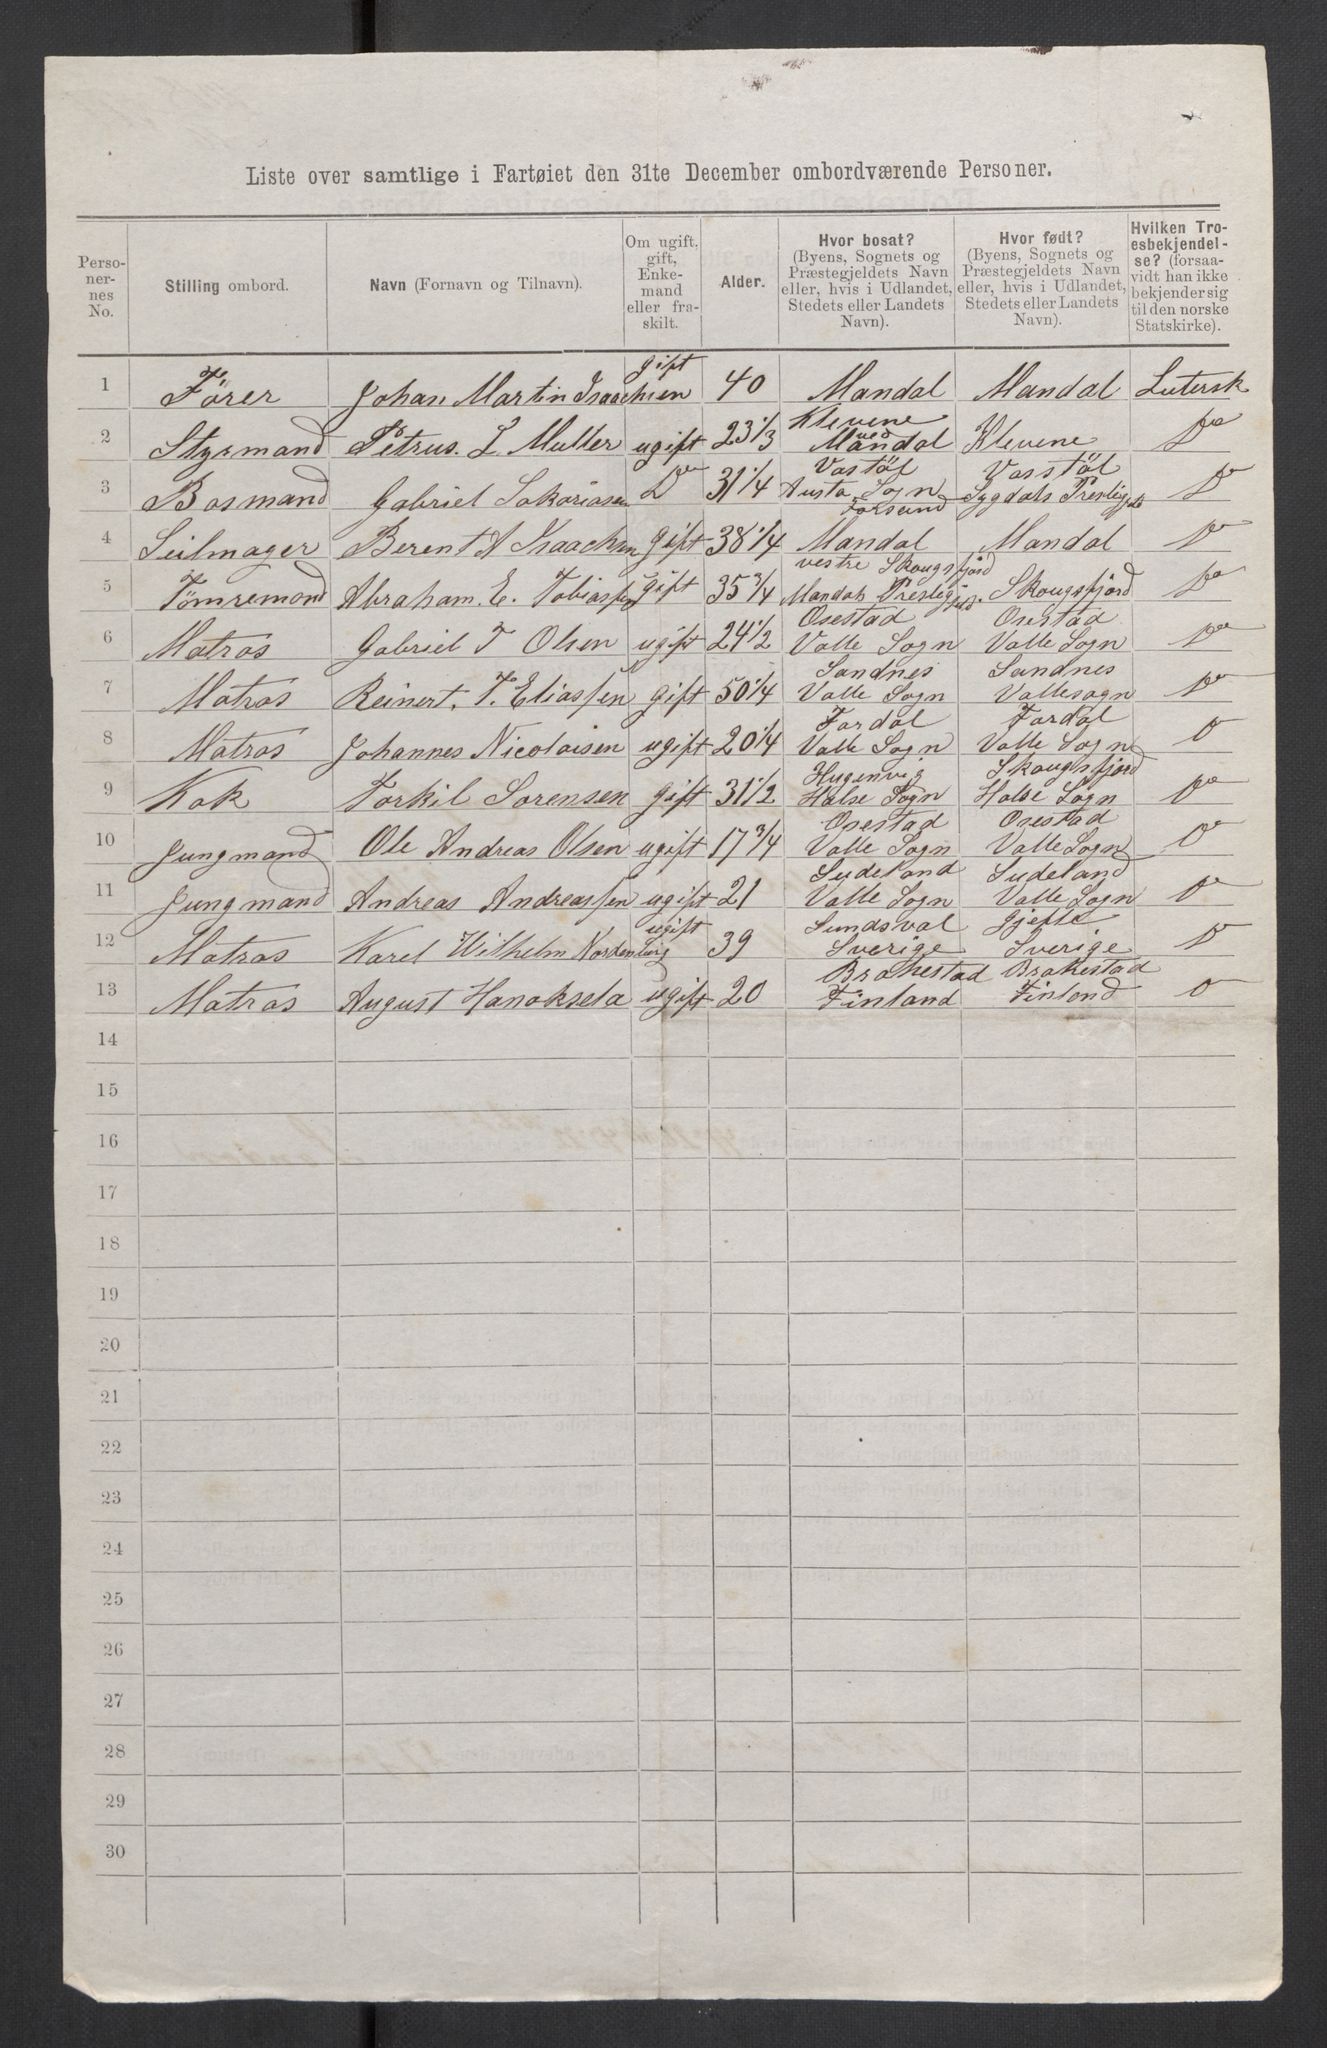 Liste over samtlige i Fartøiet den 31te December ombordværende Personer.
Perso-
ner-
nes
No.
Stilling ombord.
Navn (Fornavn og Tilnavn).
Om ugift,
gift,
Enke-
mand
eller fra-
skilt.
Alder.
Hvor bosat?
(Byens, Sognets og
Præstegjeldets Navn
eller, hvis i Udlandet,
Stedets eller Landets
Navn).
Hvor født?
(Byens, Sognets og
Præstegjeldets Navn
eller, hvis i Udlandet,
Stedets eller Landets
Navn).
Hvilken Tro-
esbekjendel-
se? (forsaa-
vidt han ikke
bekjender sig
til den norske
Statskirke).
1 Förer Johan Martin Isaachsen gift 40 Mandal Mandal Lutersk
2 Styrmand Petrus. L Muller ugift 23 1/3 Klevene ved Mandal Klevene Do
3 Bosmand Gabriel Sakariasen Do 31 1/4 Vastöl Austa Sogn Vasstöl Sygdals Do
4 Seilmager Berent A Isaachsen gift 38 1/4 Mandal Mandal Do
5 Tömremand Abraham. E. Tobiassen gift 35 3/4 vestre Skougsfjord Mandals Presligjeld. Skougsfjord Do
6 Matros Gabriel T Olsen ugift 24 1/2 Osestad Valle Sogn Osestad Valle Sogn Do
7 Matros Reinert. T. Eliassen gift 50 1/4 Sandnes Valle Sogn Sandnes Vallesogn Do
8 Matros Johannes Nicolaisen ugift 20 1/4 Fardal Valle Sogn Fardal Valle Sogn Do
9 Kok Torkil Sorensen gift 31 1/2 Hugenvig Halse Sogn Skougsfjord Halse Sogn Do
10 Jungmand Ole Andreas Olsen ugift 17 3/4 Osestad Valle Sogn Osestad Valle Sogn Do
11 Jungmand Andreas Andreassen ugift 21 Sudeland Valle Sogn Sudeland Valle Sogn Do
12 Matros Karel Wilhelm Nordenberg ugift 39 Sundsval Sverige Gjefle Sverige Do
13 Matros August Hanoksela ugift 20 Brakestad Finland Brakestad Finland Do
14
15
16
17
18
19
20
21
22
23
24
25
26
27
28
29
30